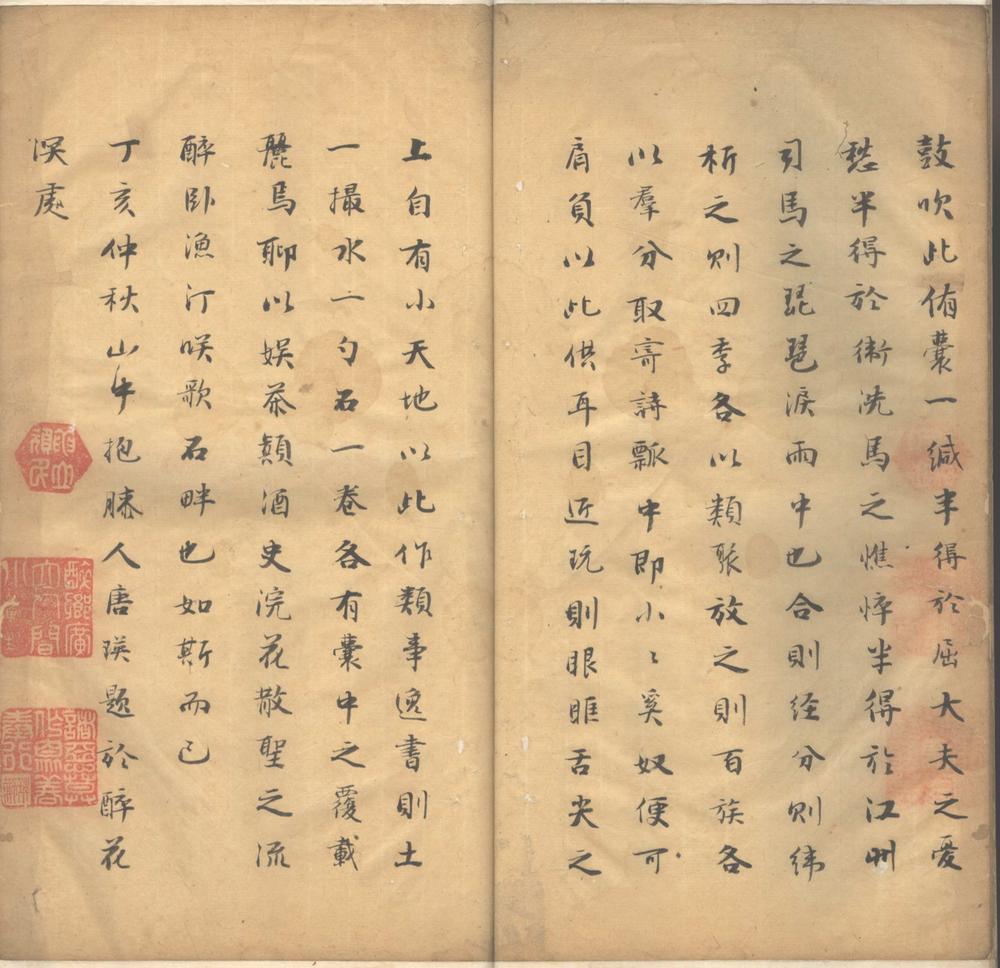 鼓吹此侑囊一緘半得於屈大夫之愛
愁半得於衛洗馬之憔悴半得於江州
司馬之琵琶淚雨中也合則經分則緯
析之則四季各以類聚放之則百族各
以羣分取寄詩瓢中即小〻奚奴便可
肩負以此供耳目近玩則眼眶舌尖之
上自有小天地以此作類事逸書則土
一撮水一勺石一卷各有囊中之覆載
麗焉聊以娛茶顛酒史浣花散聖之流
醉臥漁汀咲歌石畔也如斯而已
丁亥仲秋山午抱膝人唐瑛題於醉花
溟處